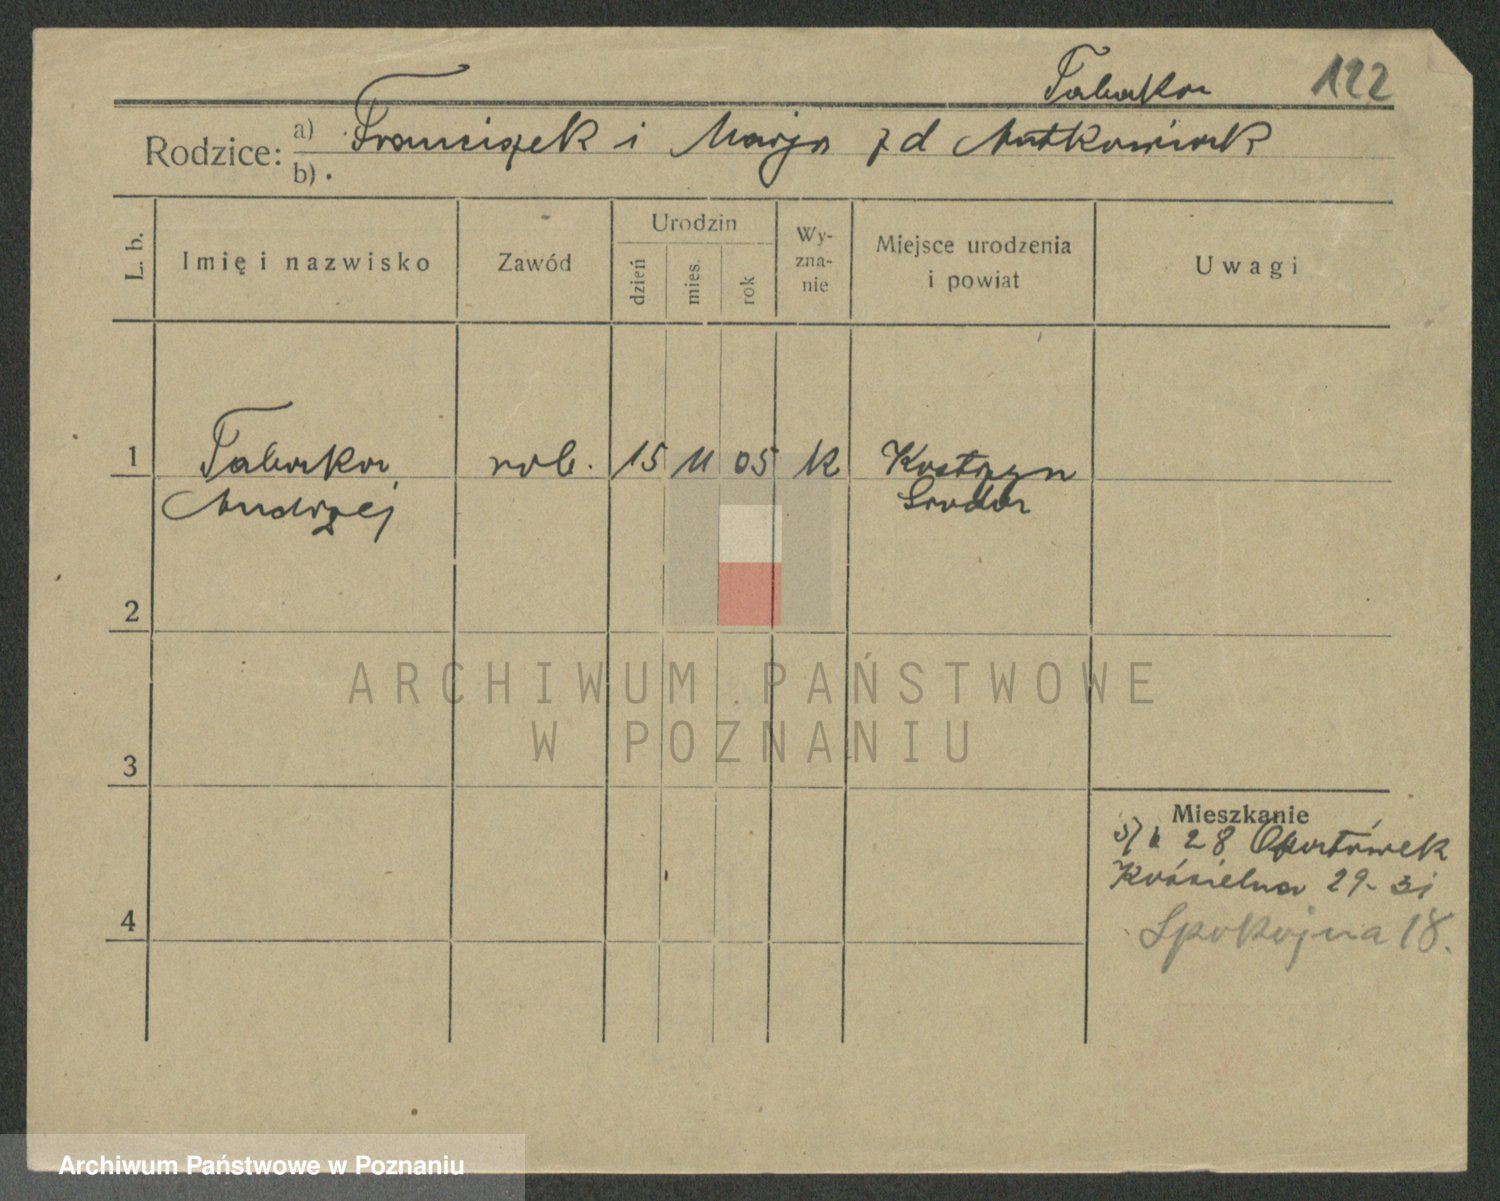 Tabaka 122
Rodzice: a) Franciszek i Marja z d Antkowiak
b)
L. b.
Imię i nazwisko
Zawód
Urodzin
dzień
mies.
rok
Wy-
zna-
nie
Miejsce urodzenia
i powiat
Uwagi
1 Tabaka rob. 15 11 05 k Kostrzyn
Andrzej Środa
2
ARCHIWUM PAŃSTWOWE
W POZNANIU
3
Mieszkanie
28
Kościelna 29-31
4
Spokojna 18.
Archiwum Państwowe w Poznaniu